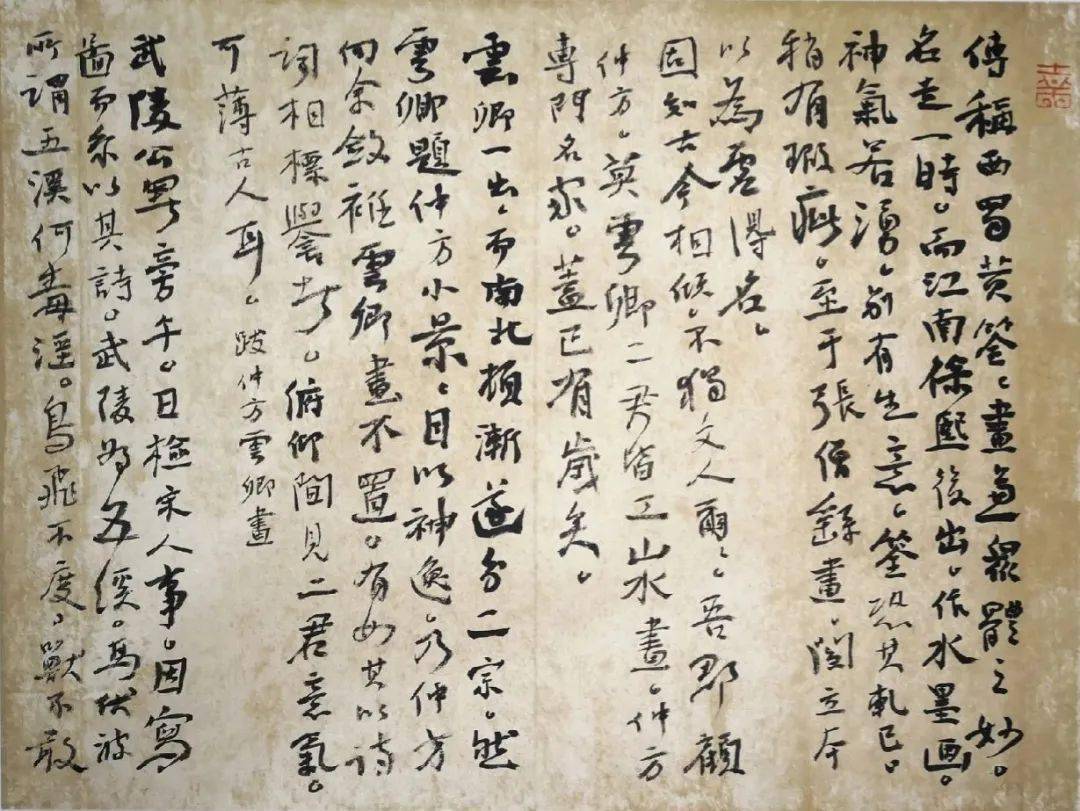 傳稱西蜀黄筌、畫兼衆體之妙。
名走一時。而江南徐熙後出。作水墨画。
神氣若湧、別有生意。筌恐其軋己。
稍有瑕疵。至于張僧繇畫、閻立本
以為虛得名。
固知古今相傾。不獨文人爾、吾郡顧
仲方、莫雲卿二君皆工山水畫。仲方
專門名家。蓋已有歲矣。
雲卿一出、而南北頓漸遂分二宗。然
雲卿題仲方小景、目以神逸。乃仲方
向余斂衽雲卿畫不置。有如其以詩
詞相標譽者。俯仰間見二君意氣。
可薄古人耳。跋仲方雲卿畫
武陵公署旁午。日檢宋人事。因寫
圖而系以其詩。武陵為五溪。馬伏波
所謂五溪何毒淫。鳥飛不度、獸不敢